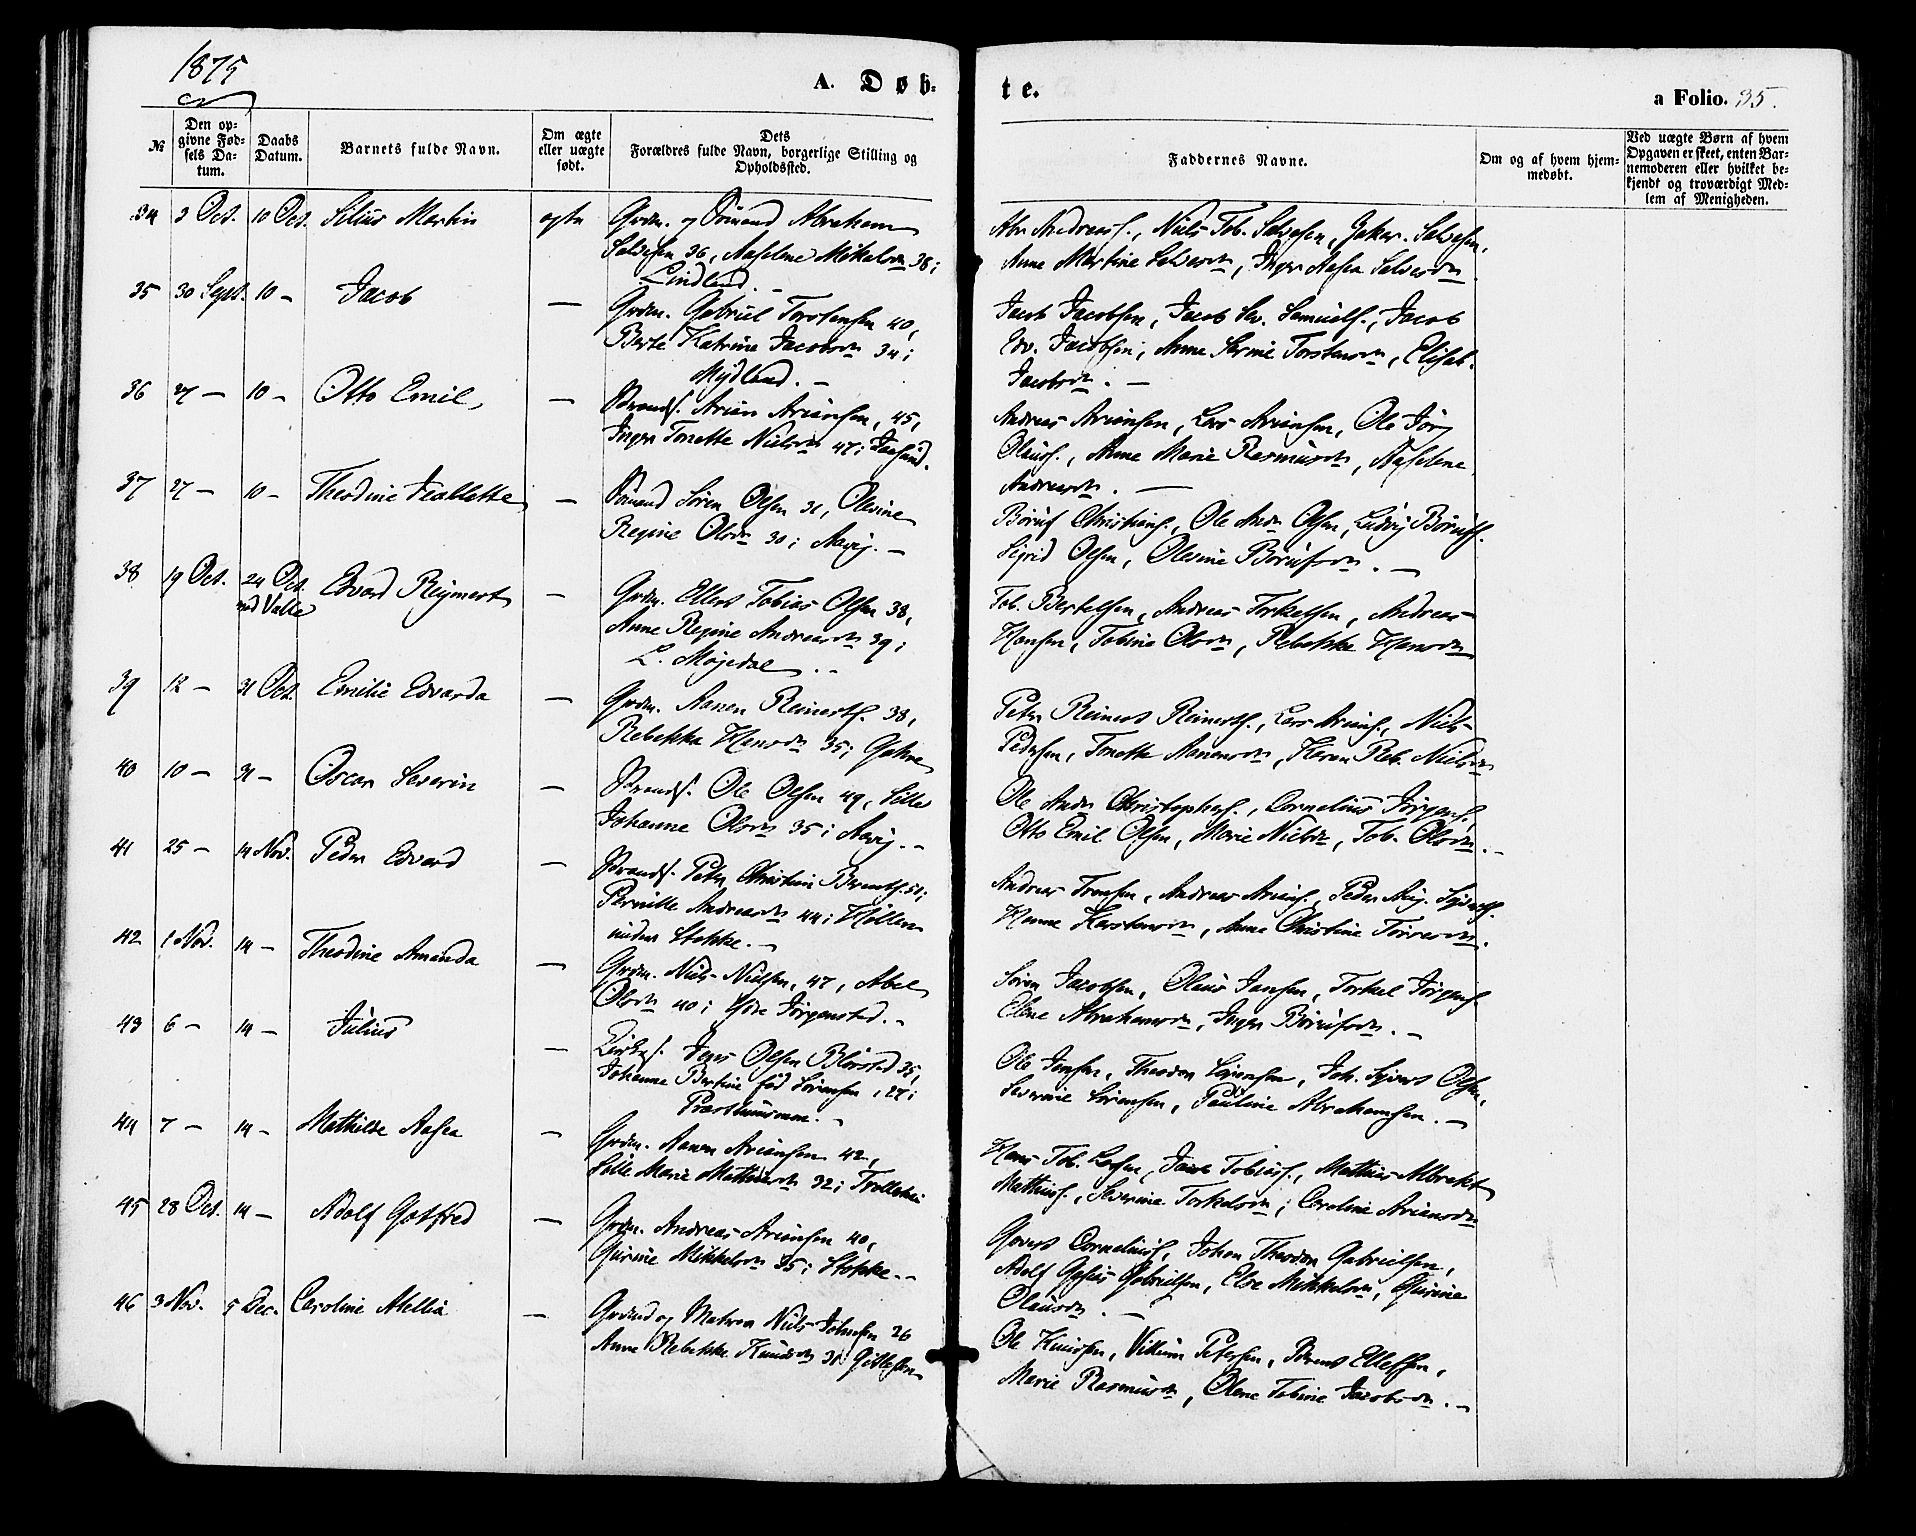 1875
A. Døb-
te.
a Folio. 35.
№
Den op-
givne Fød-
sels Da-
tum.
Daabs
Datum.
Barnets fulde Navn.
Om ægte
eller uægte
født.
Dets
Forældres fulde Navn, borgerlige Stilling og
Opholdssted.
Faddernes Navne.
Om og af hvem hjem-
medøbt.
Ved uægte Børn af hvem
Opgaven er skeet, enten Bar-
nemoderen eller hvilket be-
kjendt og troværdigt Med-
lem af Menigheden.
34 3 Oct. 10 Oct. Martin ægte Grdm. og Sømand Abraham
Salvesen 36, Mikelsdtr 38;
Lindland. -
Abr. Andreass., Niels Tob. Salvesen, Salvesen,
Anne Martine Salvesdtr, Inger Aasea Salvesdtr.
35 30 Sept. 10 - Jacob — Grdm. Gabriel Torstensen 40,
Berte Katrine Jacobsdtr 34;
Mydland. -
Jacob Jacobsen, Jacob Samuels., Jacob
Edv. Jacobsen, Anne Torstensdtr, Elisab.
Jacobsdtr. —
36 27 - 10 - Otto Emil — Arian Ariansen, 45,
Inger Tonette Nielsdtr 47;
Andreas Ariansen, Lars Ariansen, Ole Jørg
Olaus., Anne Marie Rasmusdtr, Aaselene
Andreasdtr. —
37 27 - 10 - Theodine — Sømand Søren Olsen 31, Olevine
Regine Olsdtr 30; Aavig. -
Børuf Christians., Ole Andr. Olsen, Ludvig Børufs.
Sigrid Olsen, Olevine Børufsdtr. -
38 19 Oct. 24 Oct. Edvard Reymert — Grdm. Ellert Tobias Olsen 38,
ved Valle
Anne Regine Andreasdtr 39;
L. Møgedal. -
Tob. Bertelsen, Andreas Torkelsen, Andreas
Hansen, Tobine Olsdtr, Rebekka Hansdtr
39 12 - 31 Oct. Emilie Edvarda — Grdm. Aanen Reinerts. 38,
Rebekka Hansdtr 35;
Peter Reinert Reinerts., Lars Arians., Niels
Pedersen, Tonette Aanensdtr, Karen Reb. Nielsdtr
40 10 - 31 - Oscar Severin — Ole Olsen 49, Sille
Johanne Olsdtr 35; Aavig. -
Ole Andr. Christophers., Cornelius Jørgens.,
Otto Emil Olsen, Marie Nielsdtr, Tob. Olsdtr. -
41 25 - 14 Nov. Peder Edvard — Peter Christian 51;
Pernille Andreasdtr 44; Høllen
under Stokke. -
Andreas Tronsen, Andreas Arians., Peder
Hanne Karstensdtr, Anne Christine
42 1 Nov. 14 - Theodine Amanda — Grdm. Niels Nielsen, 47, Abel
Olsdtr 40; Ydre Jørgensted. -
Søren Jacobsen, Olaus Jansen, Torkel Jørgens.
Elene Abrahamsdtr, Inger Børufsdtr. -
43 6 - 14 - Julius — Jens Olsen 35,
Johanne Bertine fød Sørensen, 27;
-
Ole Jensen, Theodor Sørensen, Joh. Sivert Olsen,
Severine Sørensen, Pauline Abrahamsen. -
44 7 - 14 - Mathilde Aasea — Grdm. Aanen Ariansen 42,
Sille Marie 32;
Hans Tob. Larsen, Tobias., Mathias Albrekt
Mathias., Severine Torkelsdtr; Caroline Ariansdtr
45 28 Oct. 14 - Adolf Gotfred — Grdm. Andreas Ariansen 40,
Gurine Mikkelsdtr 35; Stokke. -
Govert Cornelius., Johan Theodor Gabrielsen,
Adolf Gabrielsen, Else Mikkelsdtr, Gurine
Olausdtr. —
46 3 Nov. 5 Dec. Caroline — og Matros Niels Johnsen 26
Anne Rebekka Knudsdtr 31;
Ole Knudsen, Villum Petersen, Berent Ellefsen,
Marie Rasmusdtr, Olene Tobine Jacobsdtr. -